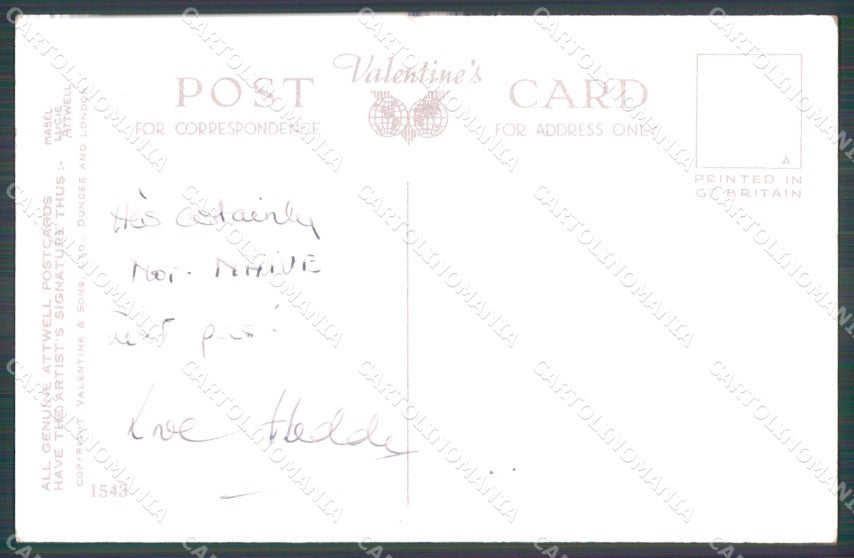 Valentine's
POST CARD
FOR CORRESPONDENCE
FOR ADDRESS ONLY
A
PRINTED IN
GT BRITAIN
ALL GENUINE ATTWELL POSTCARDS
HAVE THE ARTIST'S SIGNATURE THUS :-
MABEL
LUCIE
ATTWELL
COPYRIGHT VALENTINE & SONS, LTD., DUNDEE AND LONDON
1543
He's certainly
Not
Love
CARTOLINOMANIA